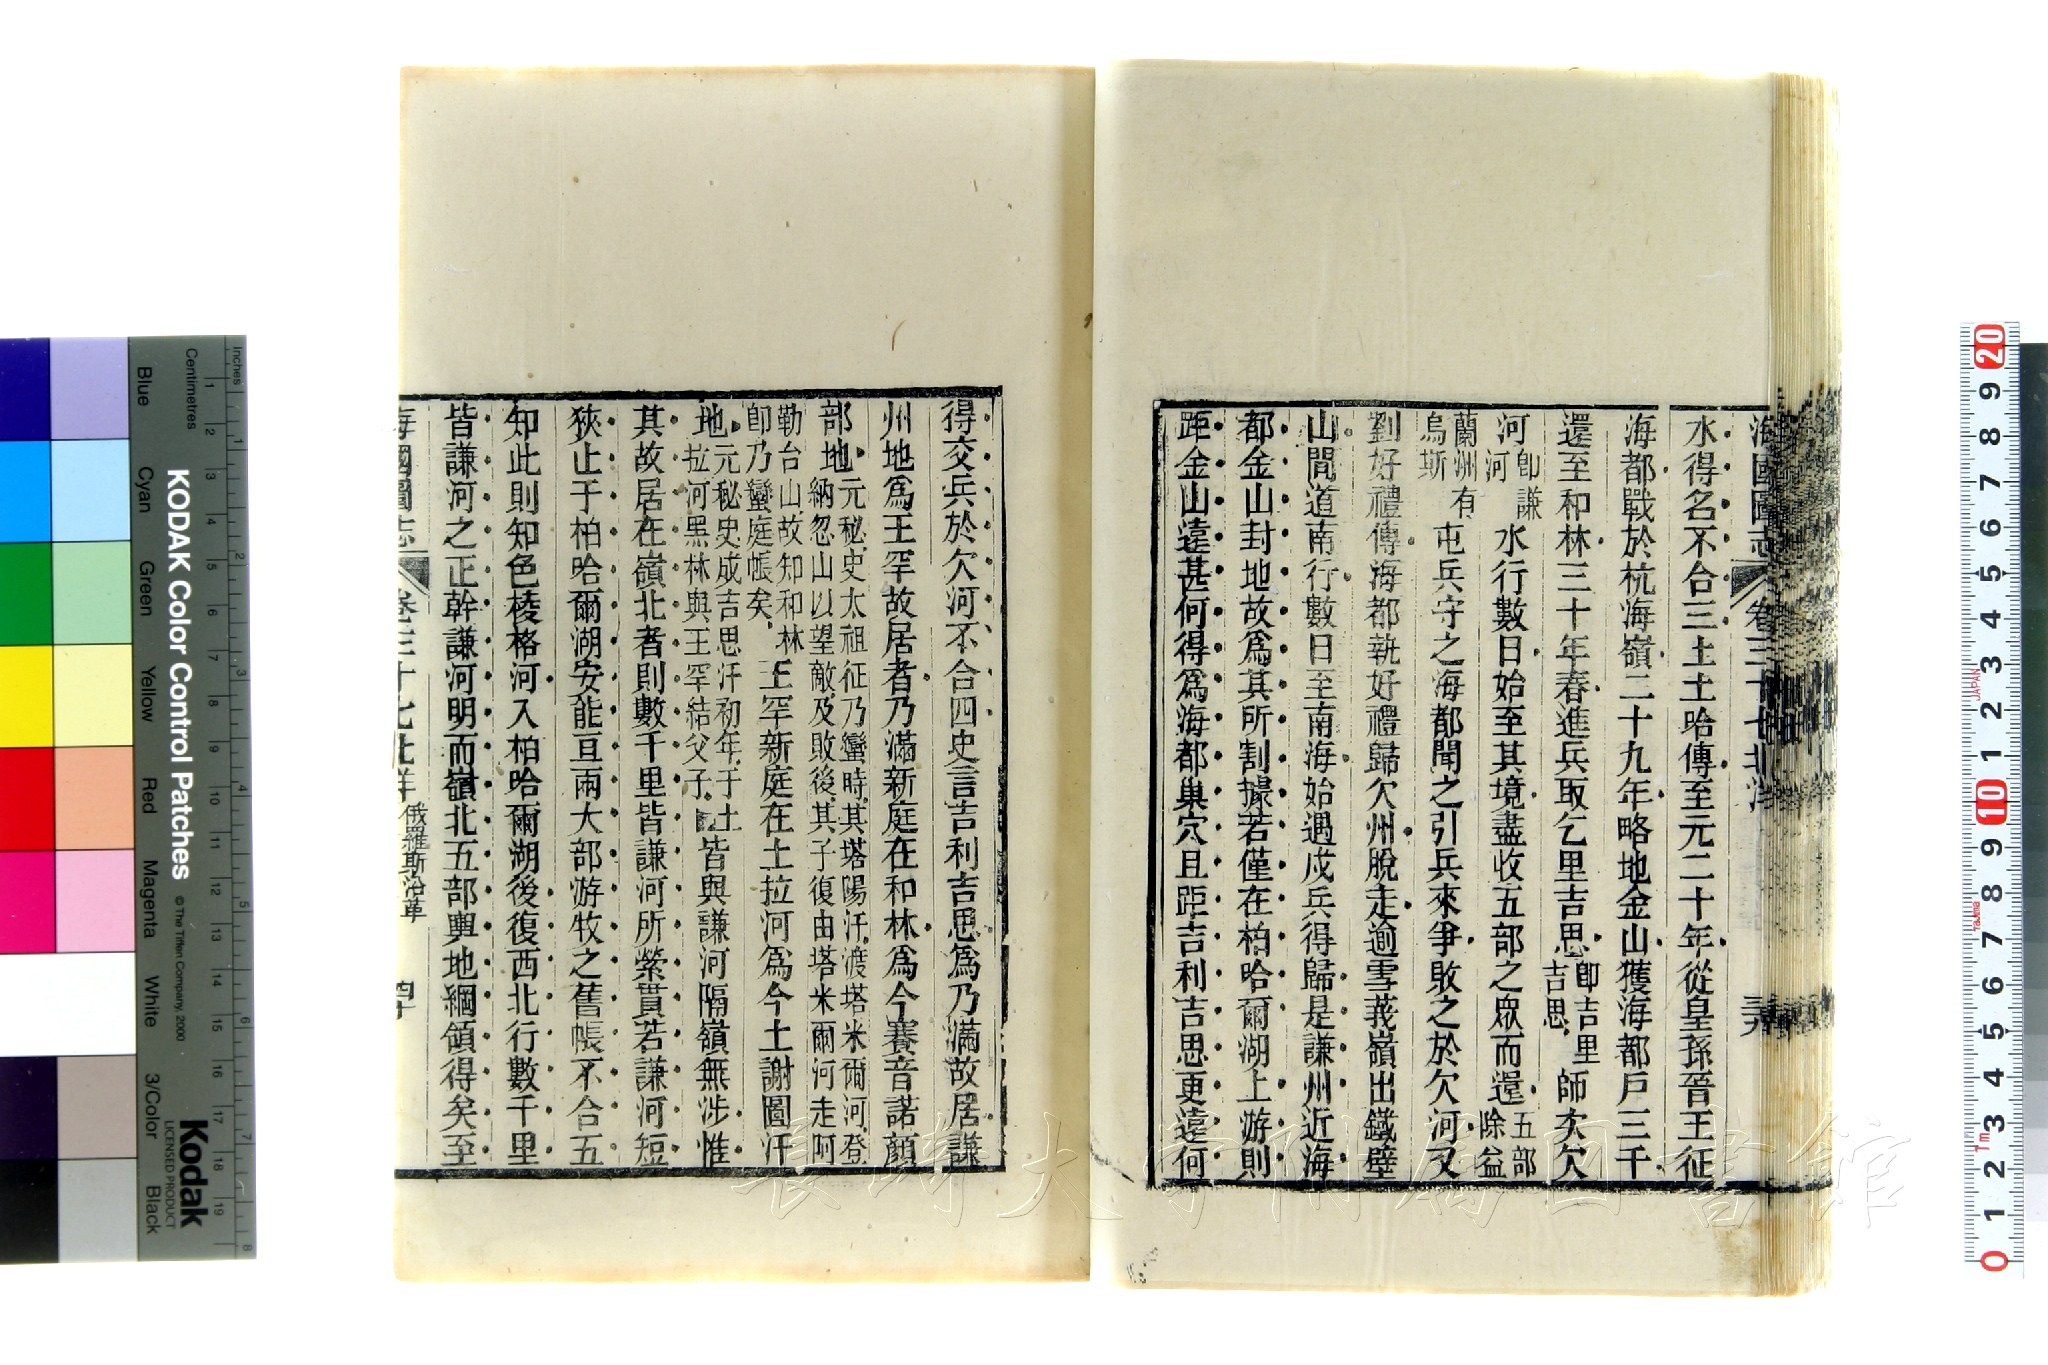 海國圖志 卷三十七 北洋 三九
水得名不合三土土哈傳至元二十年從皇孫晉王征
海都戰於杭海嶺二十九年略地金山獲海都戶三千
還至和林三十年春進兵取乞里吉思卽吉里吉思師次欠
河卽謙河水行數日始至其境盡收五部之眾而還五部除益
蘭州有烏斯屯兵守之海都聞之引兵來爭敗之於欠河又
劉好禮傳海都執好禮歸欠州脫走逾雪莪嶺出鐵壁
山間道南行數日至南海始遇戍兵得歸是謙州近海
都金山封地故爲其所割據若僅在柏哈爾湖上游則
距金山遠甚何得爲海都巢穴且距吉利吉思更遠何
得交兵於欠河不合四史言吉利吉思爲乃滿故居謙
州地爲王罕故居者乃滿新庭在和林爲今賽音諾顏
部地元秘史太祖征乃蠻時其塔陽汗渡塔米爾河登納忽山以望敵及敗後其子復由塔米爾河走阿
勒台山故知和林卽乃蠻庭帳矣王罕新庭在土拉河爲今土謝圖汗
地元秘史成吉思汗初年于土拉河黑林與王罕結父子皆與謙河隔嶺無涉惟
其故居在嶺北者則數千里皆謙河所縈貫若謙河短
狹止于柏哈爾湖安能亘兩大部游牧之舊帳不合五
知此則知色棱格河入柏哈爾湖後復西北行數千里
皆謙河之正幹謙河明而嶺北五部輿地綱領得矣至
海國圖志 卷三十七 北洋 俄羅斯沿革 四十
KODAK Color Control Patches
© The Tiffen Company, 2000
Kodak
LICENSED PRODUCT
Inches
Centimetres
Blue
Cyan
Green
Yellow
Red
Magenta
White
3/Color
Black
長崎大学附属図書館
JAPAN